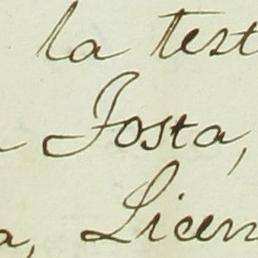 la test
a Josta,
a, Licen